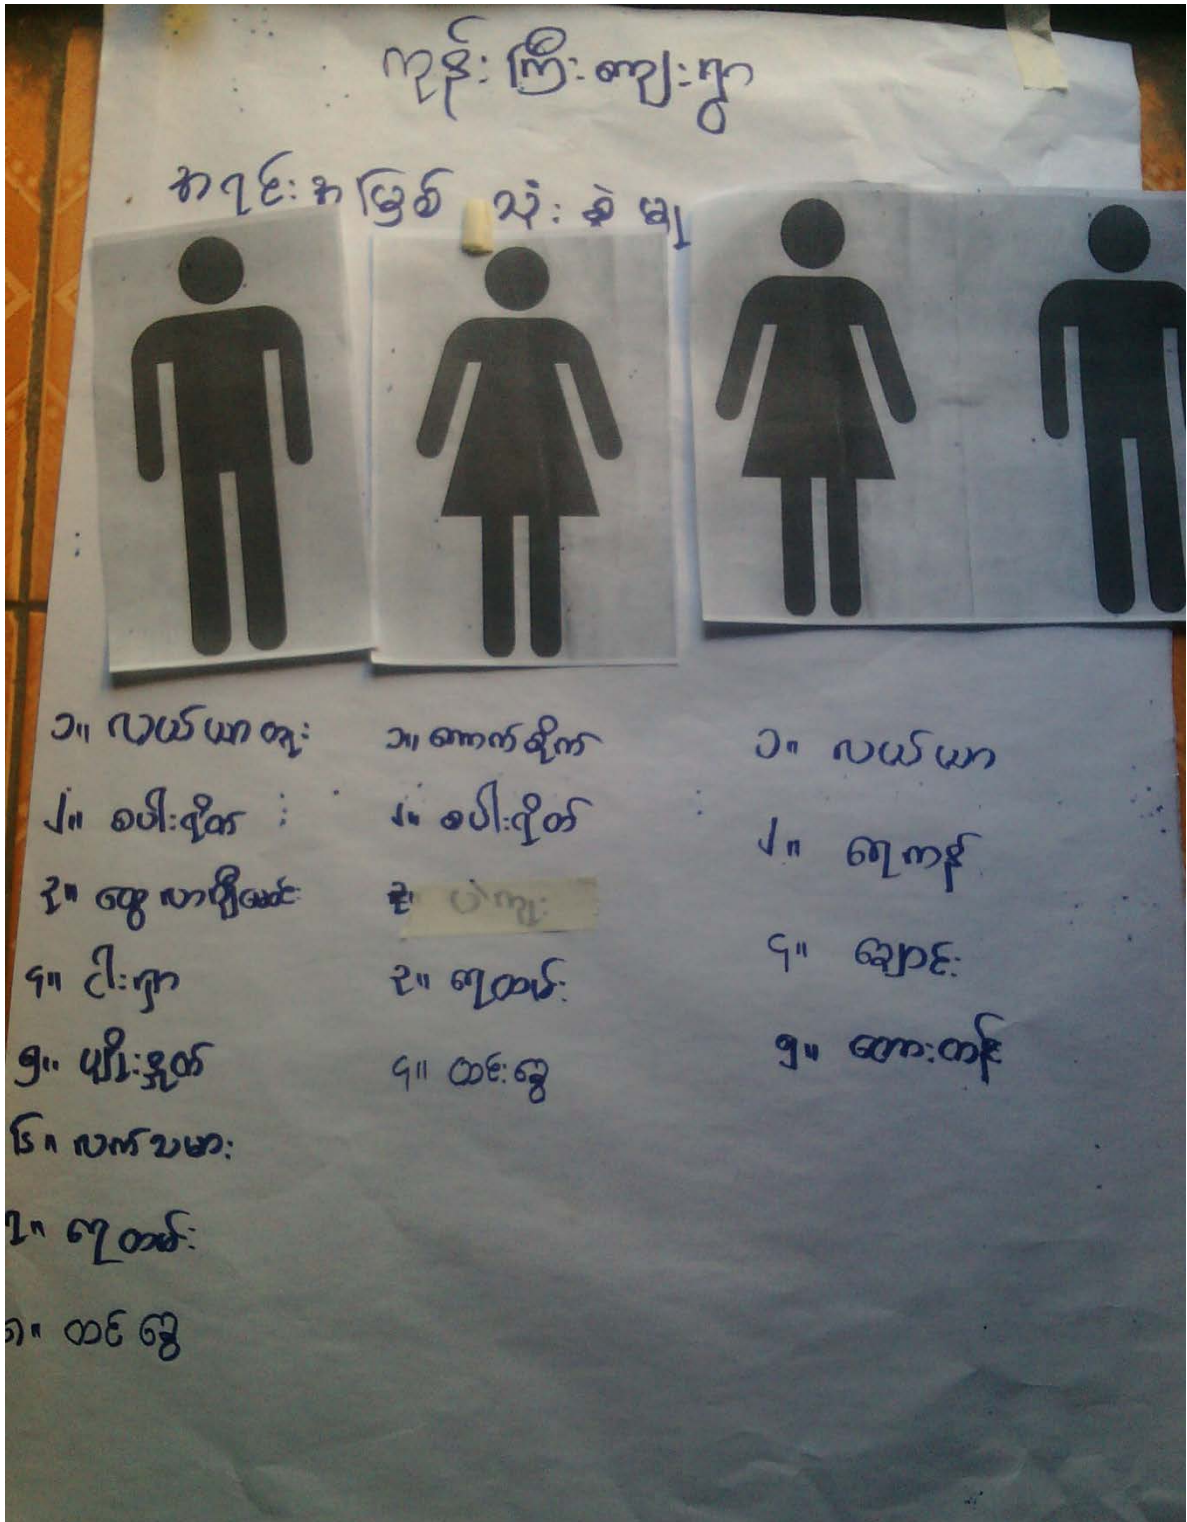 ကုန်းကြီးကျေးရွာ
အရင်းအမြစ် သုံးစွဲမှု
၁။ လယ်ယာထွန်း
၂။ စပါးရိတ်
၃။
၄။ ငါးရှာ
၅။ ပျိုးနှုတ်
၆။ လက်သမား
၇။ ရေထမ်း
၈။ ထင်းခွေ
၁။ ကောက်စိုက်
၂။ စပါးရိတ်
၃။ ရေထမ်း
၄။ ထင်းခွေ
၁။ လယ်ယာ
၂။ ရေကန်
၄။ ချောင်း
၅။ တောတန်း